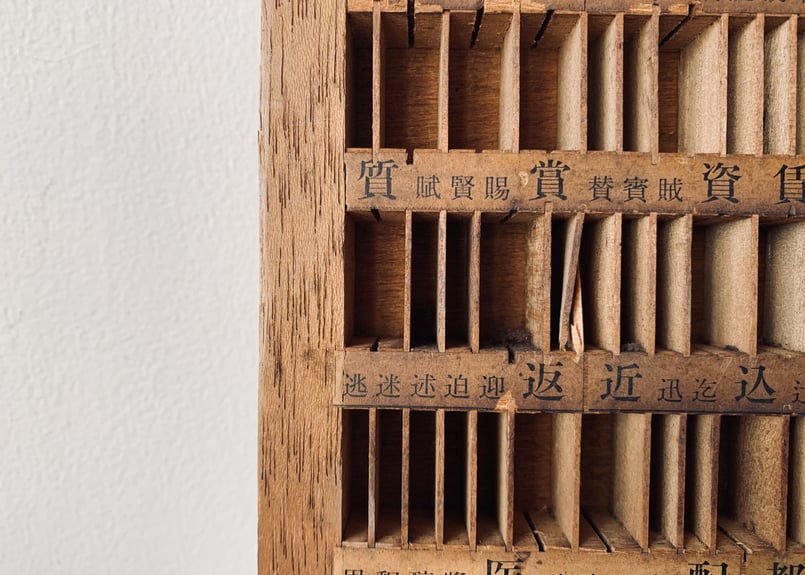 質賦賢賜賞賛賓賊資賃
逃迷述迫迎返近迅迄込
配都